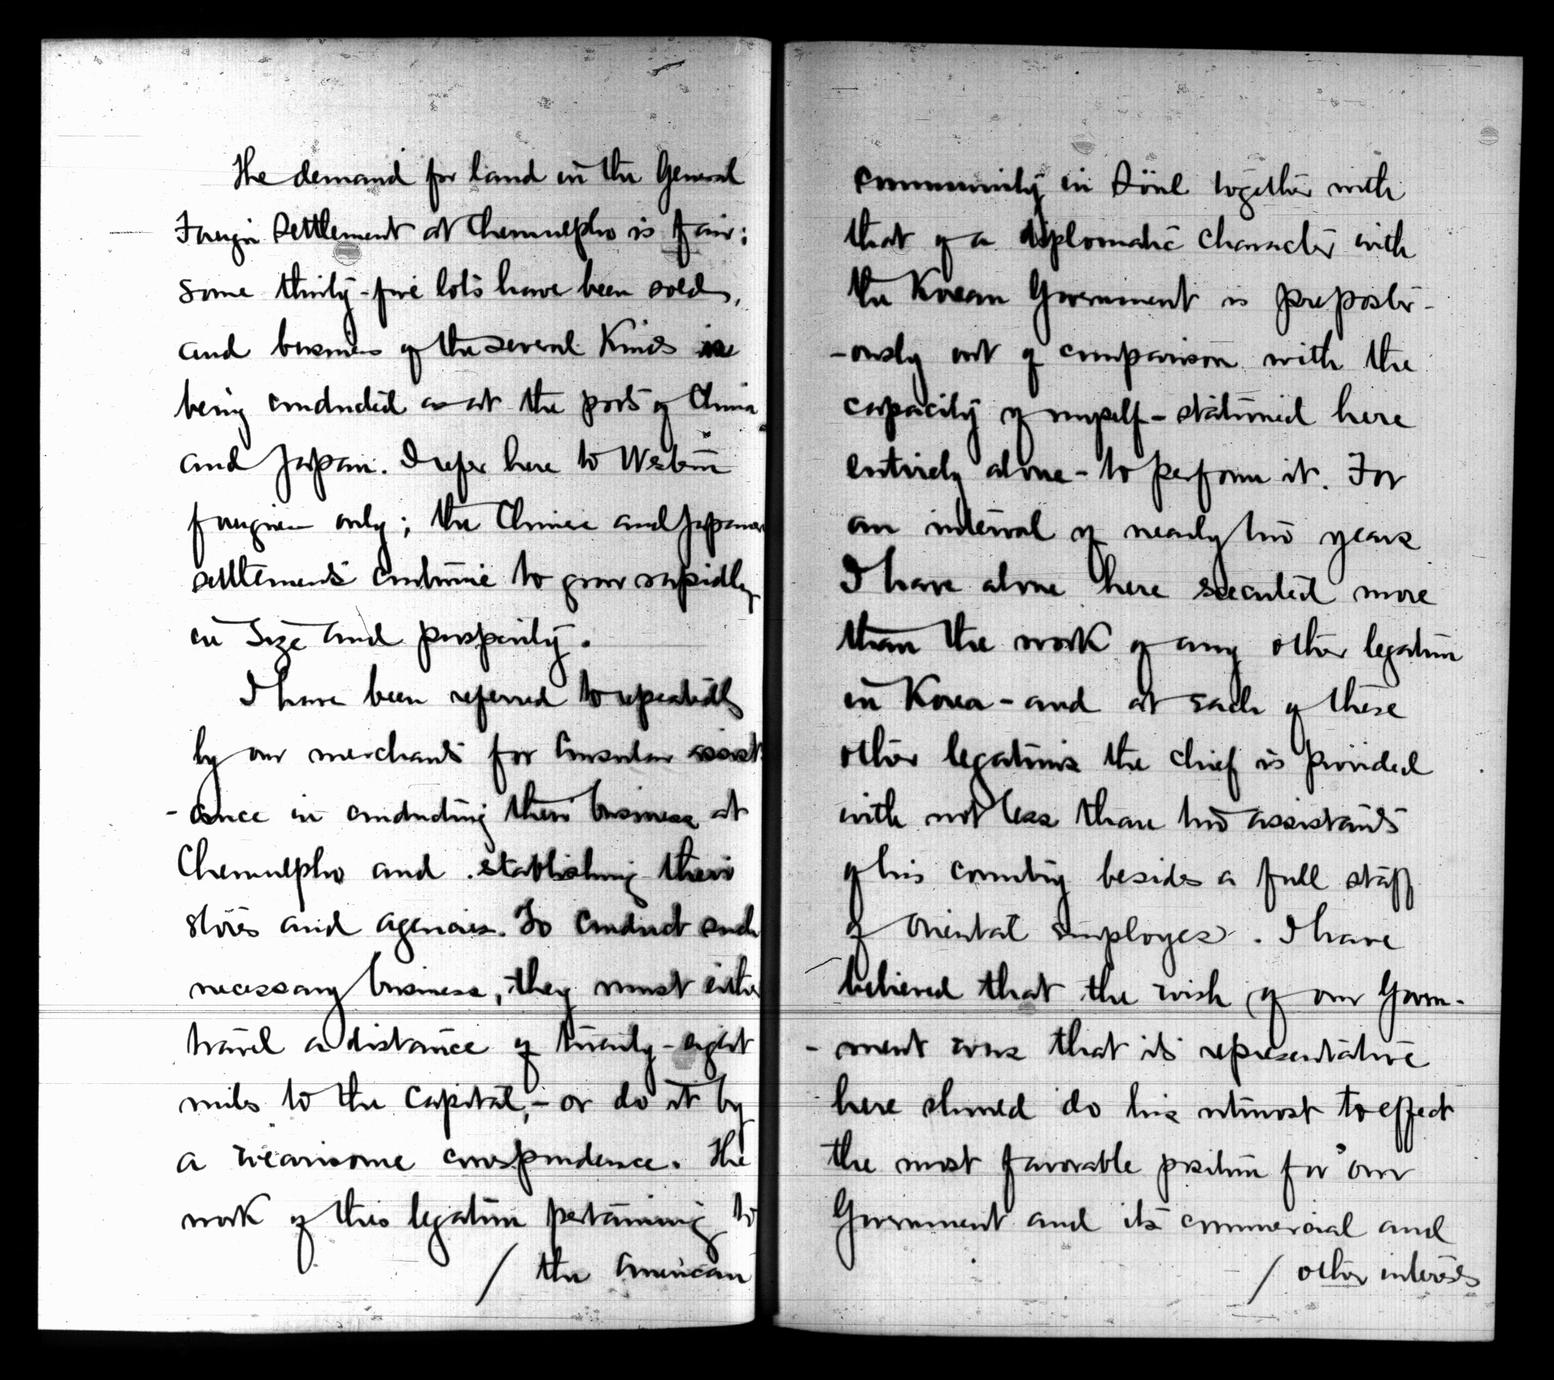 The demand for land in the General
Foreign Settlement at Chemulpho is fair;
some thirty-five lots have been sold,
and business of the several kinds is
being conducted as at the ports of China
and Japan. I refer here to Western
foreigners only; the Chinese and Japanese
settlements continue to grow rapidly
in size and prosperity.
I have been referred to repeatedly
by our merchants for Consular assist
-ance in conducting their business at
Chemulpho and establishing their
stores and agencies. To conduct such
necessary business, they must either
travel a distance of twenty-eight
miles to the Capital,- or do it by
a wearisome correspondence. The
work of this legation pertaining to
/ the American
community in Söul together with
that of a diplomatic character with
the Korean Government is preposter-
-ously out of comparison with the
capacity of myself - stationed here
entirely alone - to perform it. For
an interval of nearly two years
I have alone here executed more
than the work of any other legation
in Korea - and at each of these
other legations the chief is provided
with not less than two assistants
of his country besides a full staff
of oriental employes. I have
believed that the wish of our Govern-
-ment was that its representative
here should do his utmost to effect
the most favorable position for our
Government and its commercial and
/ other interests